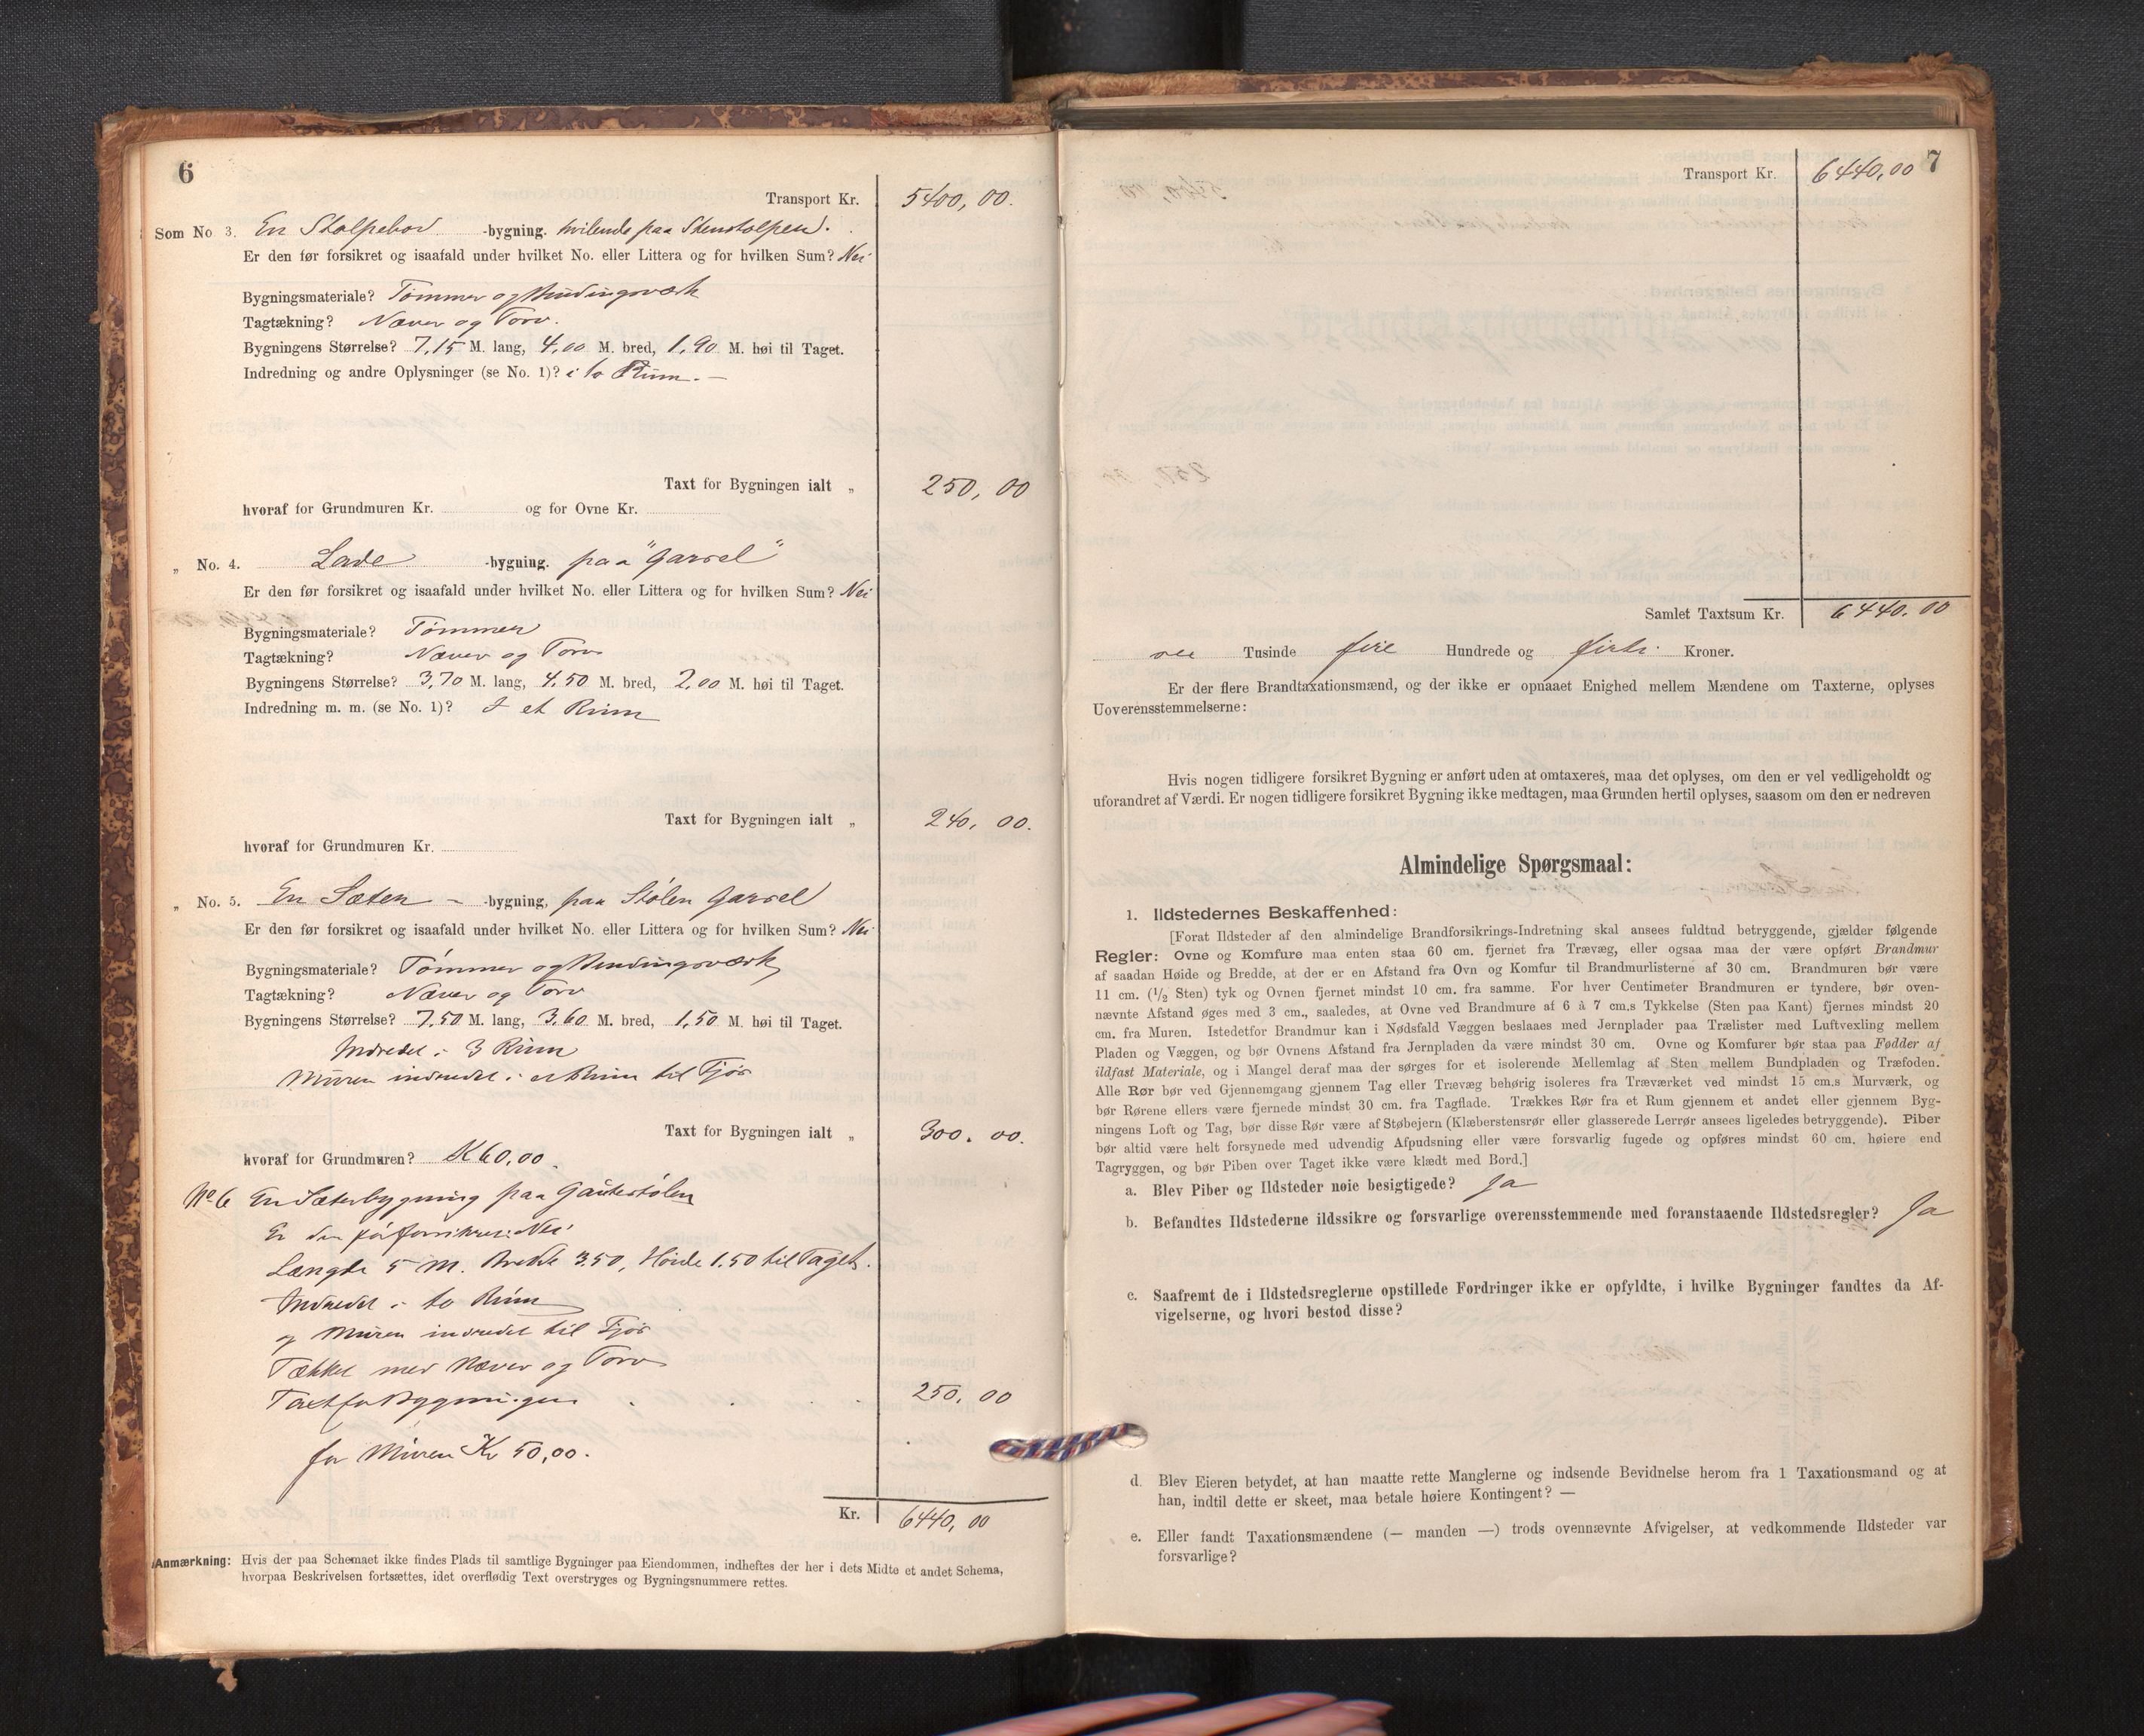 6
Transport Kr. 5400,00.
Som No 3. En Stolpebod -bygning. hvilende paa Stenstolper.
Er den før forsikret og isaafald under hvilket No. eller Littera og for hvilken Sum? Nei
Bygningsmateriale? Tømmer og Bindingsværk
Tagtækning? Næver og Torv.
Bygningens Størrelse? 7,15 M. lang, 4,00 M. bred, 1,90 M. høi til Taget.
Indredning og andre Oplysninger (se No. 1)? i to Rum. —
Taxt for Bygningen ialt „ 250,00
hvoraf for Grundmuren Kr. og for Ovne Kr.
„ No. 4. Lade -bygning. paa "Garsel"
Er den før forsikret og isaafald under hvilket No. eller Littera og for hvilken Sum? Nei
Bygningsmateriale? Tømmer
Tagtækning? Næver og Torv
Bygningens Størrelse? 3,70 M. lang, 4,50 M. bred, 2,00 M. høi til Taget.
Indredning m. m. (se No. 1)? I et Rum
Taxt for Bygningen ialt „ 240,00.
hvoraf for Grundmuren Kr.
„ No. 5. En Sæter – -bygning, paa Stølen Garsel
Er den før forsikret og isaafald under hvilket No. eller Littera og for hvilken Sum? Nei
Bygningsmateriale? Tømmer og Bindingsværk
Tagtækning? Næver og Torv
Bygningens Størrelse? 7,50 M. lang, 3,60 M. bred, 1,50 M. høi til Taget.
Indredet i 3 Rum
Muren indredet i et Rum til Fjøs
Taxt for Bygningen ialt „ 300.00.
hvoraf for Grundmuren? K 60,00.
No 6 En Sæterbygning paa Gautestølen
Er den før forsikret: Nei
Længde 5 M. Bredde 3.50, Høide 1.50 til Taget.
Indredet i to Rum
og Muren indredet til Fjøs
Tækket med Næver og Torv
Taxt for Bygningen . . . 250,00
for Muren Kr 50,00.
Kr. 6440,00
Anmærkning: Hvis der paa Schemaet ikke findes Plads til samtlige Bygninger paa Eiendommen, indheftes der her i dets Midte et andet Schema,
hvorpaa Beskrivelsen fortsættes, idet overflødig Text overstryges og Bygningsnummere rettes.
7
Transport Kr. 6440,00
Samlet Taxtsum Kr. 6440.00
Tusinde fire Hundrede og firti Kroner.
Er der flere Brandtaxationsmænd, og der ikke er opnaaet Enighed mellem Mændene om Taxterne, oplyses
Uoverensstemmelserne:
Hvis nogen tidligere forsikret Bygning er anført uden at omtaxeres, maa det oplyses, om den er vel vedligeholdt og
uforandret af Værdi. Er nogen tidligere forsikret Bygning ikke medtagen, maa Grunden hertil oplyses, saasom om den er nedreven
Almindelige Spørgsmaal:
1. Ildstedernes Beskaffenhed:
[Forat Ildsteder af den almindelige Brandforsikrings-Indretning skal ansees fuldtud betryggende, gjælder følgende
Regler: Ovne og Komfure maa enten staa 60 cm. fjernet fra Trævæg, eller ogsaa maa der være opført Brandmur
af saadan Høide og Bredde, at der er en Afstand fra Ovn og Komfur til Brandmurlisterne af 30 cm. Brandmuren bør være
11 cm. (1/2 Sten) tyk og Ovnen fjernet mindst 10 cm. fra samme. For hver Centimeter Brandmuren er tyndere, bør oven-
nævnte Afstand øges med 3 cm., saaledes, at Ovne ved Brandmure af 6 à 7 cm.s Tykkelse (Sten paa Kant) fjernes mindst 20
cm. fra Muren. Istedetfor Brandmur kan i Nødsfald Væggen beslaaes med Jernplader paa Trælister med Luftvexling mellem
Pladen og Væggen, og bør Ovnens Afstand fra Jernpladen da være mindst 30 cm. Ovne og Komfurer bør staa paa Fødder af
ildfast Materiale, og i Mangel deraf maa der sørges for et isolerende Mellemlag af Sten mellem Bundpladen og Træfoden.
Alle Rør bør ved Gjennemgang gjennem Tag eller Trævæg behørig isoleres fra Træværket ved mindst 15 cm.s Murværk, og
bør Rørene ellers være fjernede mindst 30 cm. fra Tagflade. Trækkes Rør fra et Rum gjennem et andet eller gjennem Byg-
ningens Loft og Tag, bør disse Rør være af Støbejern (Klæberstensrør eller glasserede Lerrør ansees ligeledes betryggende). Piber
bør altid være helt forsynede med udvendig Afpudsning eller være forsvarlig fugede og opføres mindst 60 cm. høiere end
Tagryggen, og bør Piben over Taget ikke være klædt med Bord.]
a. Blev Piber og Ildsteder nøie besigtigede? Ja
b. Befandtes Ildstederne ildssikre og forsvarlige overensstemmende med foranstaaende Ildstedsregler? Ja
c. Saafremt de i Ildstedsreglerne opstillede Fordringer ikke er opfyldte, i hvilke Bygninger fandtes da Af-
vigelserne, og hvori bestod disse?
d. Blev Eieren betydet, at han maatte rette Manglerne og indsende Bevidnelse herom fra 1 Taxationsmand og at
han, indtil dette er skeet, maa betale høiere Kontingent? —
e. Eller fandt Taxationsmændene (— manden —) trods ovennævnte Afvigelser, at vedkommende Ildsteder var
forsvarlige?